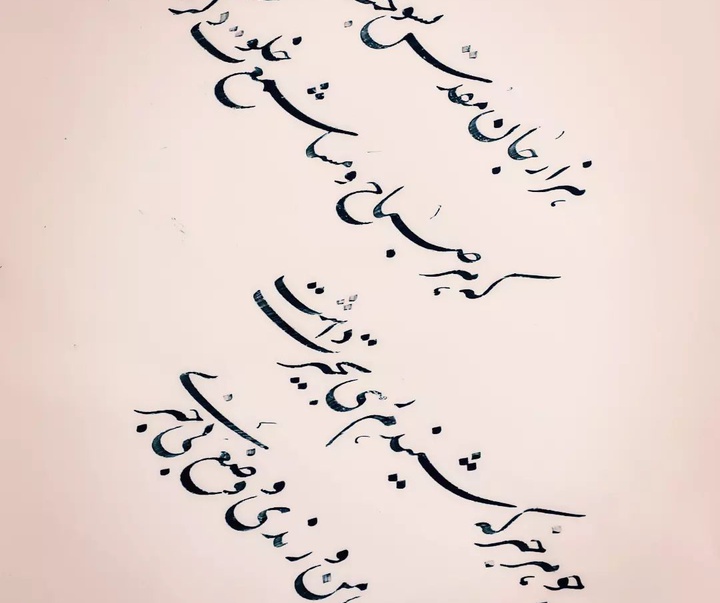 هزار جان مقدس
که هر صباح و مسا شمع خلوت
چو هر خبر که شنیدم رهی بحیرت داشت
من و رندی و وضع بی خبری